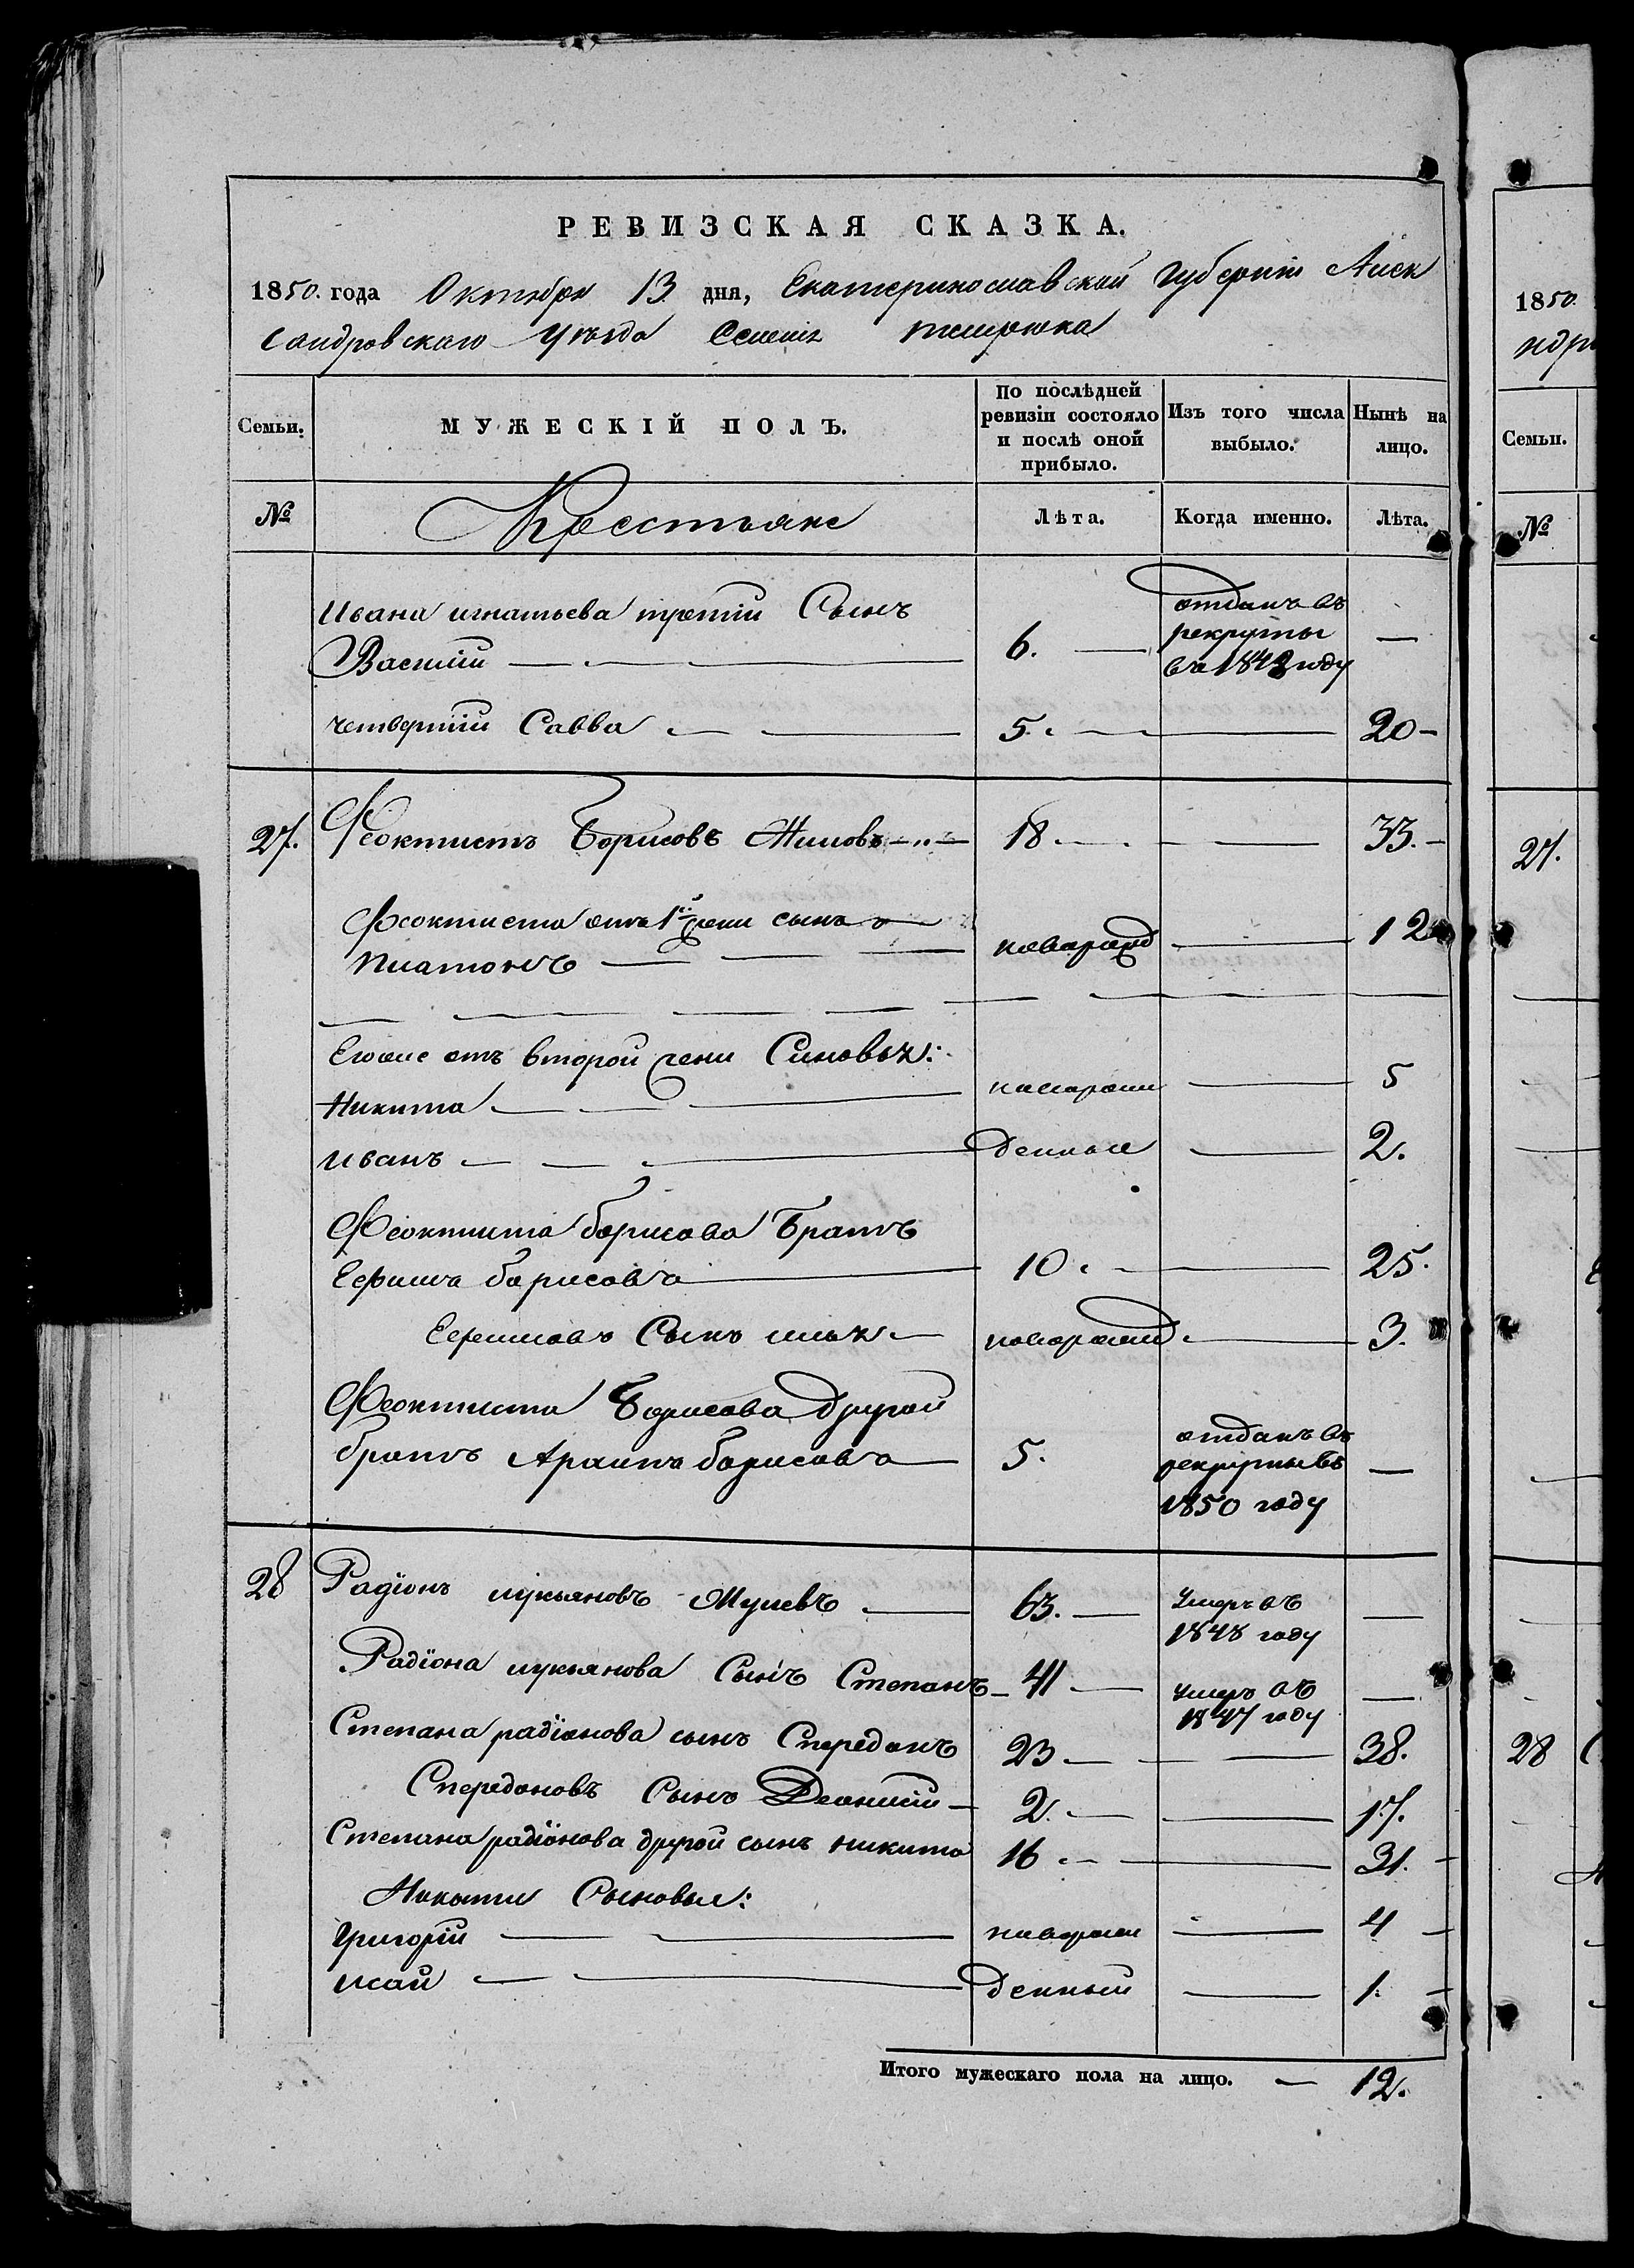 РЕВИЗСКАЯ СКАЗКА.
1850. года Октября 13 дня, Екатеринославской Губерніи Алек
сандровскаго Уѣзда Селенія
Семьи.
МУЖЕСКІЙ ПОЛЪ.
По послѣдней ревизіи состояло и послѣ оной прибыло.
Изъ того числа выбыло.
Нынѣ на лицо.
№ Крестьяне Лѣта. Когда именно. Лѣта.
Ивана игнатьева третіи Сынъ
Василіи — 6. — отданъ въ рекруты въ 1842 году —
четвертіи Савва — 5. — 20 —
27. Феоктистъ Борисовъ — 18. — 33. —
Феоктиста отъ 1й жени сынъ
Платонъ — новорожд — 12
Егоже отъ второй жени Синовья:
Никита — новорож — 5
Иванъ — денные — 2.
Феоктиста борисова Братъ
Ефимъ борисовъ — 10. — 25.
Ефимовъ Сынъ илья — новорожд. — 3.
Феоктиста Борисова другой
братъ Архипъ борисовъ — 5. отданъ въ рекруты въ 1850 году —
28 Радіонъ лукьяновъ — 63. — Умеръ въ 1848 году —
Радіона лукьянова Сынъ Степанъ — 41 — умеръ въ 1847 году —
Степана радіонова сынъ Спередонъ 23 — 38.
Спередоновъ Сынъ Деонисіи — 2. — 17.
Степана радіонова другой сынъ никита 16 — 31. —
Никити Сыновья:
Григоріи — новорож — 4 —
Исаи — денныи — 1. —
Итого мужескаго пола на лицо. — 12.
1850.
Семьи.
№
27.
28